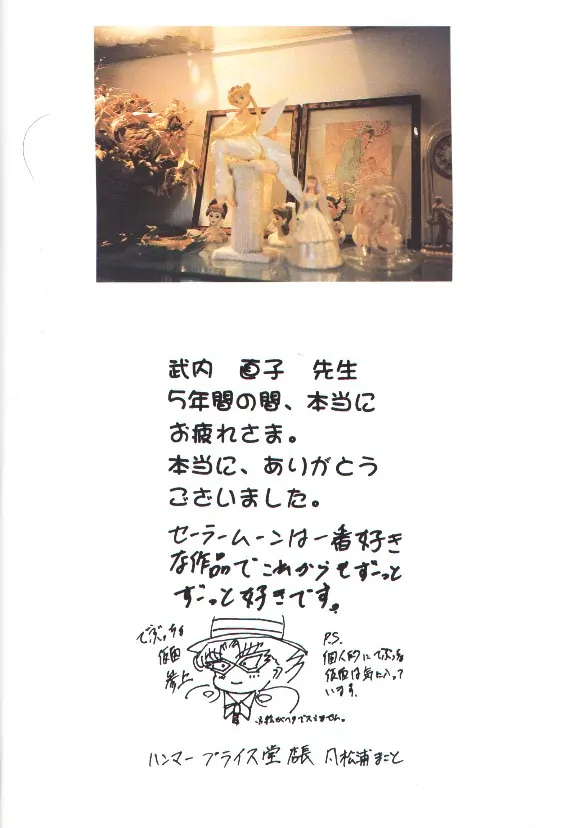 武内　直子　先生
5年間の間、本当に
お疲れさま。
本当に、ありがとう
ございました。
セーラームーンは一番好き
な作品でこれからもずーっと
ずーっと好きです。
でぶっちょ
仮面
参上
P.S.
個人的にでぶっちょ
仮面は気に入って
います。
絵がヘタですみません。
ハンマープライス堂 店長 松浦まこと